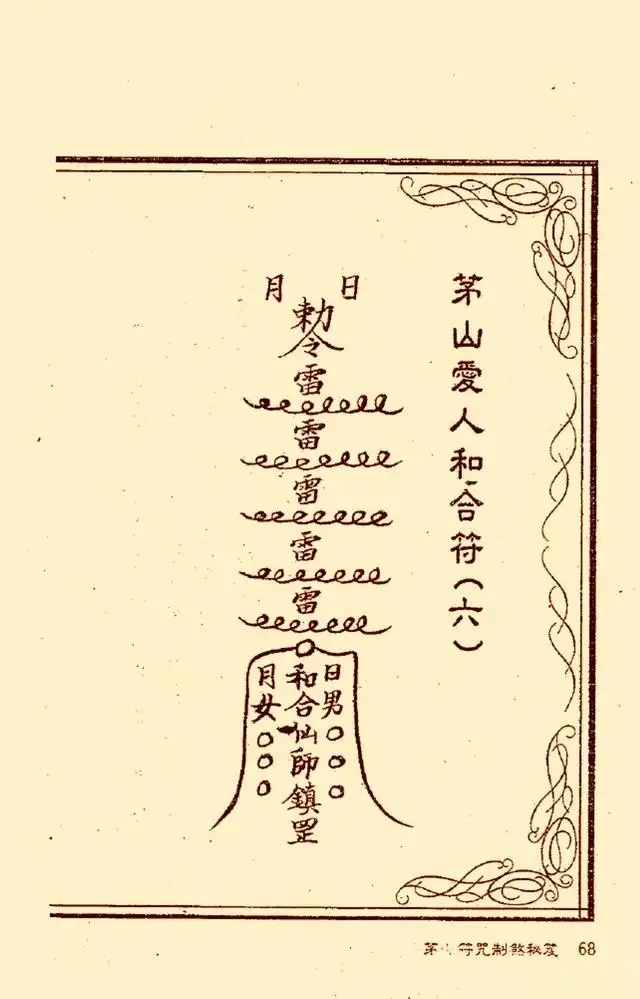 茅山愛人和合符(六)
日 月
勅令
雷
雷
雷
雷
雷
日男○○○
和合仙師鎮罡
月女○○○
茅 符咒制煞秘笈 68